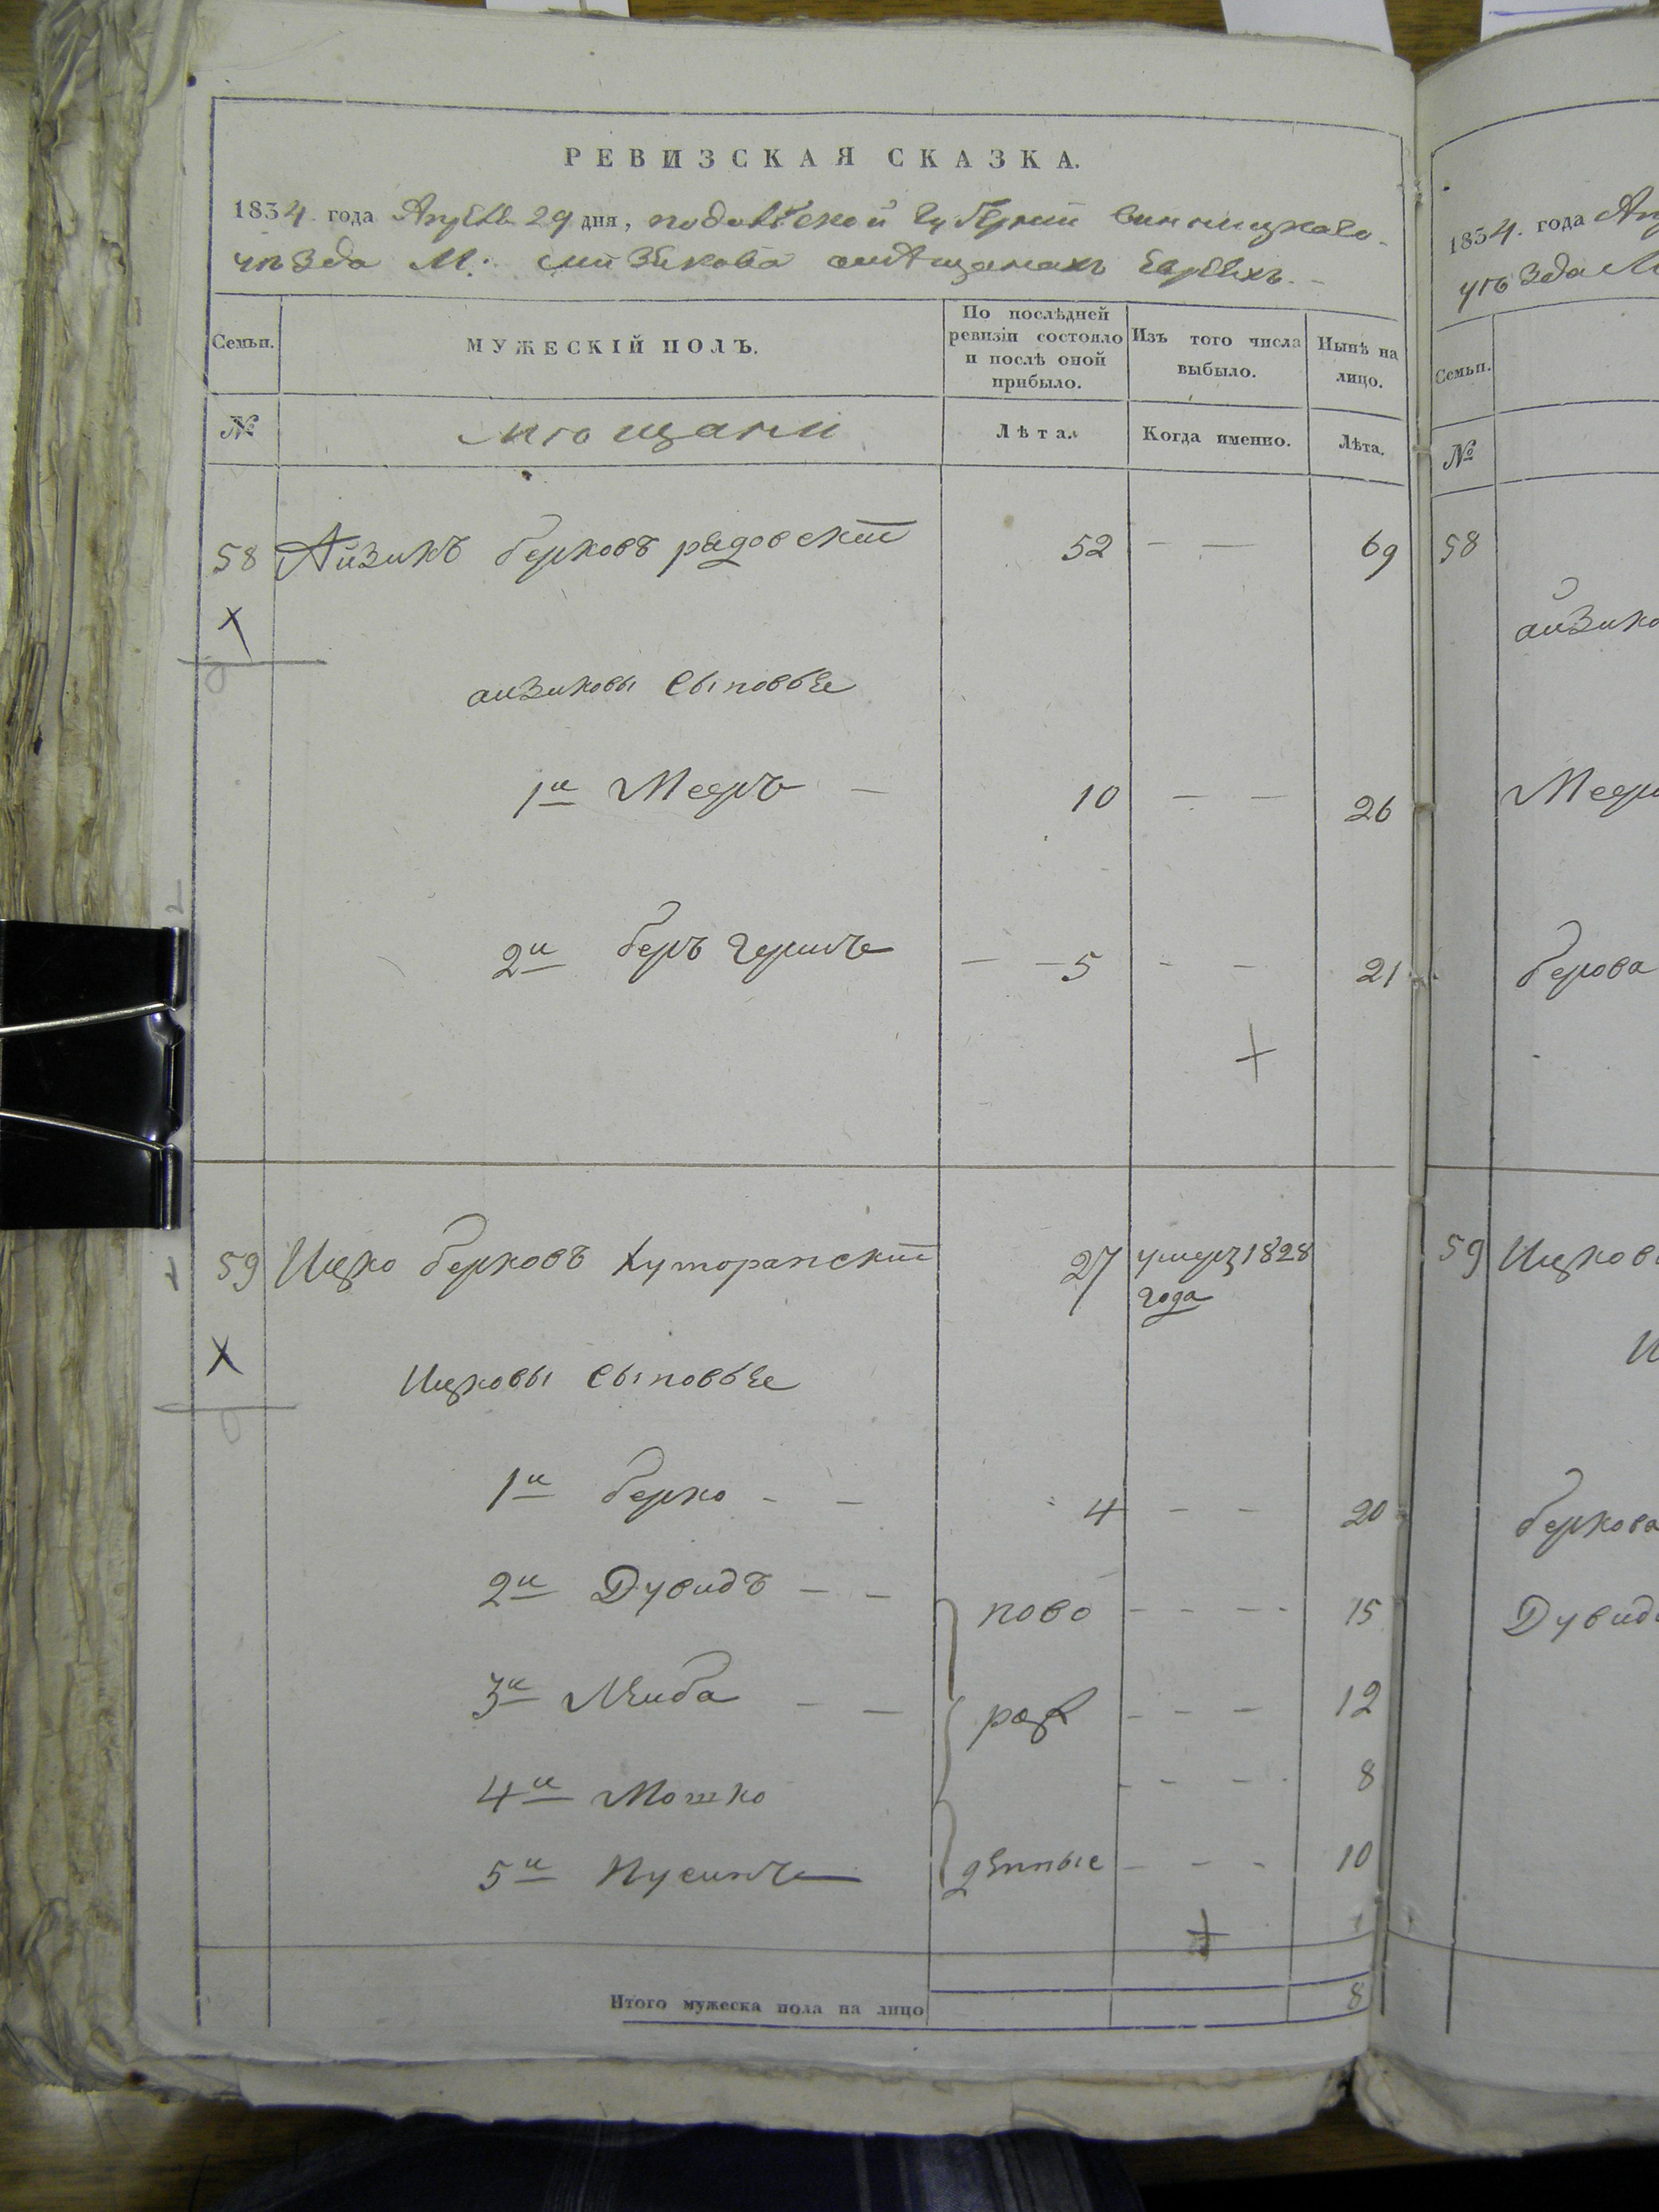 РЕВИЗСКАЯ СКАЗКА.
1834 года Апреля 29 дня, подольской губернии винницкаго
уѣзда М: о мѣщанахъ Евреяхъ.
Семьи.
МУЖЕСКІЙ ПОЛЪ.
По послѣдней ревизіи состояло и послѣ оной прибыло.
Изъ того числа выбыло.
Нынѣ на лицо.
№
мѣщани
Лѣта.
Когда именно.
Лѣта.
58 Айзикъ берковъ радовскій 52 — — 69
айзиковы сыновье
1й Мееръ — 10 — — 26
2й беръ герштъ — — 5 - - 21
59 Ицко берковъ Хуторанскій 27 умеръ 1828
года
Ицковы сыновье
1й берко - - 4 - - 20
2й Дувидъ - - ново - - - - 15
3й Лейба - - рож - - - 12
4й Мошко - - - 8
5й Нусинъ денные - - - 10
Итого мужеска пола на лицо 8
1834. года Ап
уѣзда М
Семьи.
№
58
айзико
Меер
берова
59 Ицков
И
беркова
Дувид